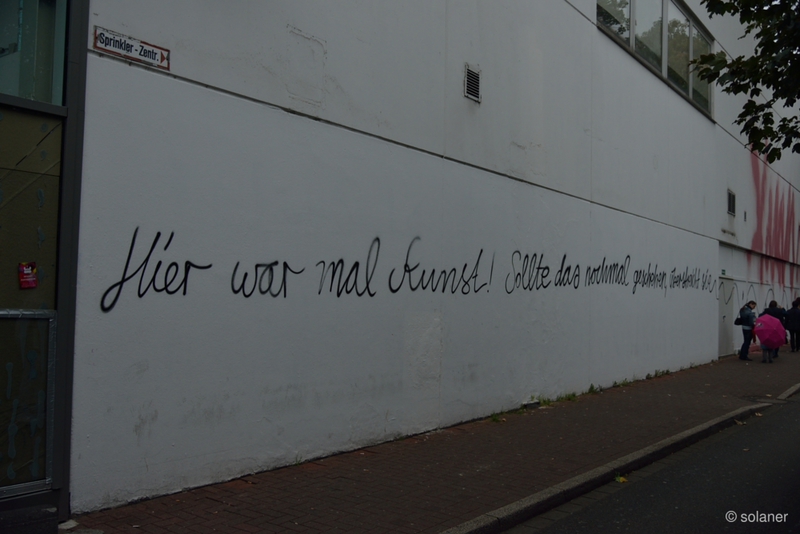 Sprinkler - Zentr.
Hier war mal Kunst! Sollte das nochmal geschehen,
© solaner